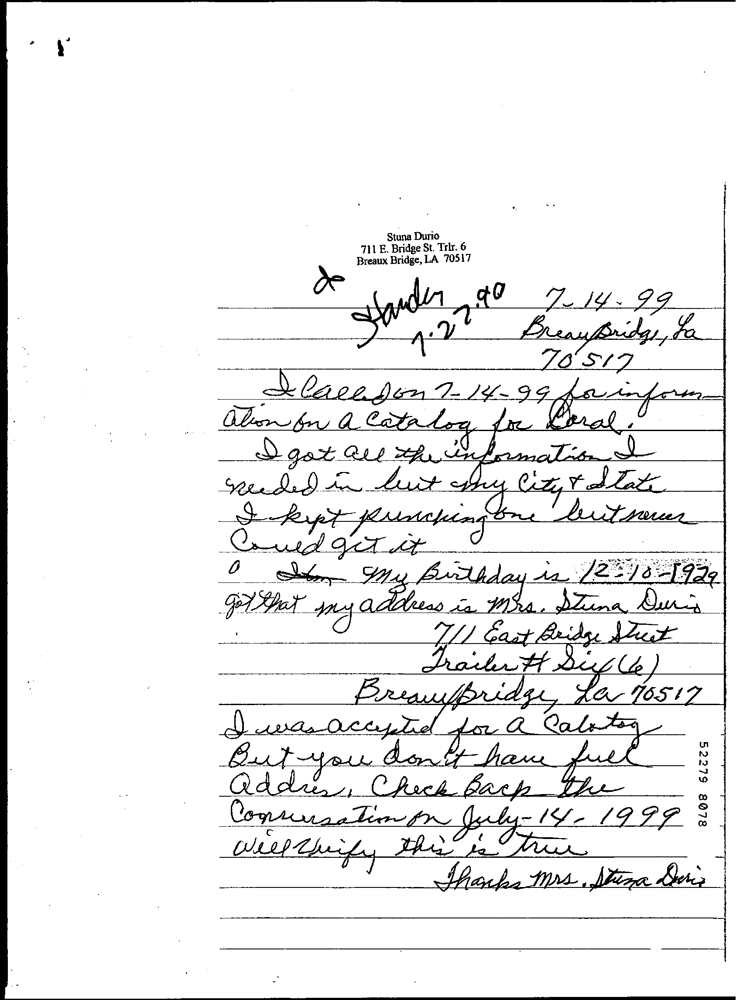 Stuna Durio
711 E. Bridge St. Trlr. 6
Breaux Bridge, LA 70517
7-14-99
Breaux Bridge, La
70517
I Called on 7-14-99 for inform-
ation on a Catalog for Coral.
I got all the information I
needed in but my City & State
I kept punching one but never
Coued get it
My Birthday is 12-10-1929
got that my address is Mrs. Stuna Durio
711 East Bridge Street
Trailer # Six (6)
Breaux Bridge, La 70517
I was accepted for a Calotog
But you don't have full
addres, Check Back the
Conversation on July-14-1999
will Verify this is true
Thanks Mrs. Stuna Durio
52279 8078